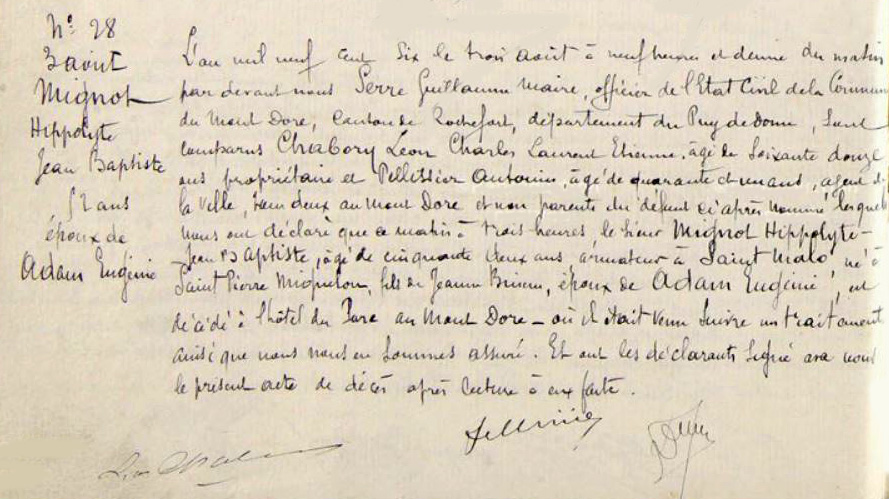 N° 28
3 août
Mignot
Hippolyte
Jean Baptiste
52 ans
époux de
Adam Eugénie
L'an mil neuf cent six le trois août à neuf heures et demie du matin
par devant nous Serre Guillaume Maire, officier de l'Etat Civil de la Commune
du Mont Dore, Canton de Rochefort, département du Puy de Dome, sont
comparus Chabory Léon Charles Laurent Etienne, âgé de soixante douze
ans propriétaire et Pellissier Antonin, âgé de quarante et un ans, agent de
la ville, tous deux au Mont Dore et non parents du défunt ci après nommé lesquels
nous ont déclaré que ce matin à trois heures, le sieur Mignot Hippolyte-
Jean Baptiste, âgé de cinquante deux ans armateur à Saint Malo né à
Saint Pierre Miquelon, fils de Jeanne, époux de Adam Eugénie, est
décédé à l'hôtel du Parc au Mont Dore - où il était venu suivre un traitement
ainsi que nous nous en sommes assuré. Et ont les déclarants signé avec nous
le présent acte de décès après lecture à eux faite.